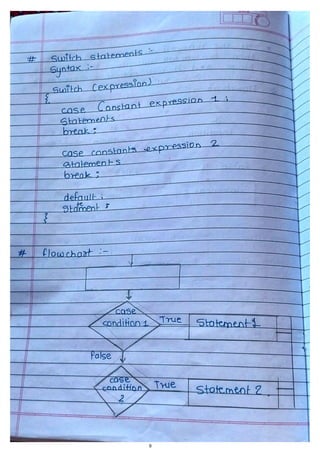 # Switch statements :-
Syntax :-
Switch (expression)
{
case Constant expression 1 ;
Statements
break ;
case constants expression 2
statements
break ;
default ;
Stament ;
}
# flowchart :-
case
condition 1
True
Statement 1
False
case
condition
2
True
Statement 2